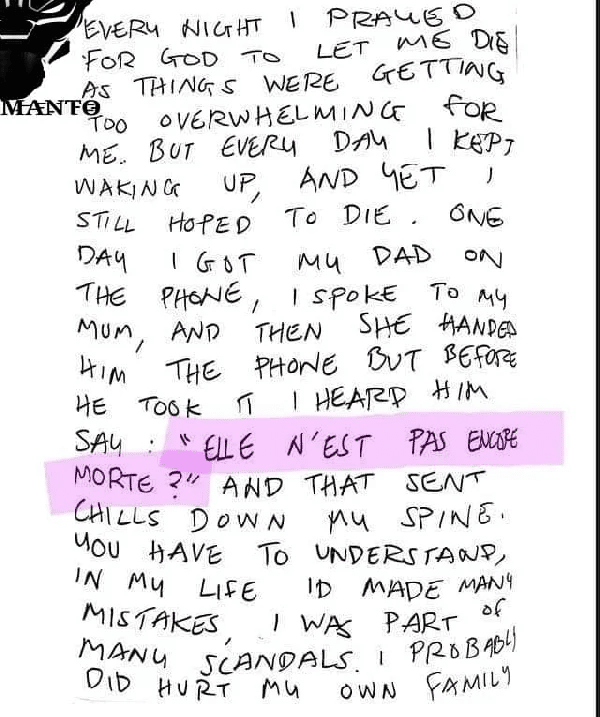 EVERY NIGHT I PRAYED
FOR GOD TO LET ME DIE
AS THINGS WERE GETTING
MANTO
TOO OVERWHELMING FOR
ME. BUT EVERY DAY I KEPT
WAKING UP, AND YET I
STILL HOPED TO DIE. ONE
DAY I GOT MY DAD ON
THE PHONE, I SPOKE TO MY
MUM, AND THEN SHE HANDED
HIM THE PHONE BUT BEFORE
HE TOOK IT I HEARD HIM
SAY : "ELLE N'EST PAS ENCORE
MORTE ?" AND THAT SENT
CHILLS DOWN MY SPINE.
YOU HAVE TO UNDERSTAND,
IN MY LIFE ID MADE MANY
MISTAKES, I WAS PART OF
MANY SCANDALS. I PROBABLY
DID HURT MY OWN FAMILY